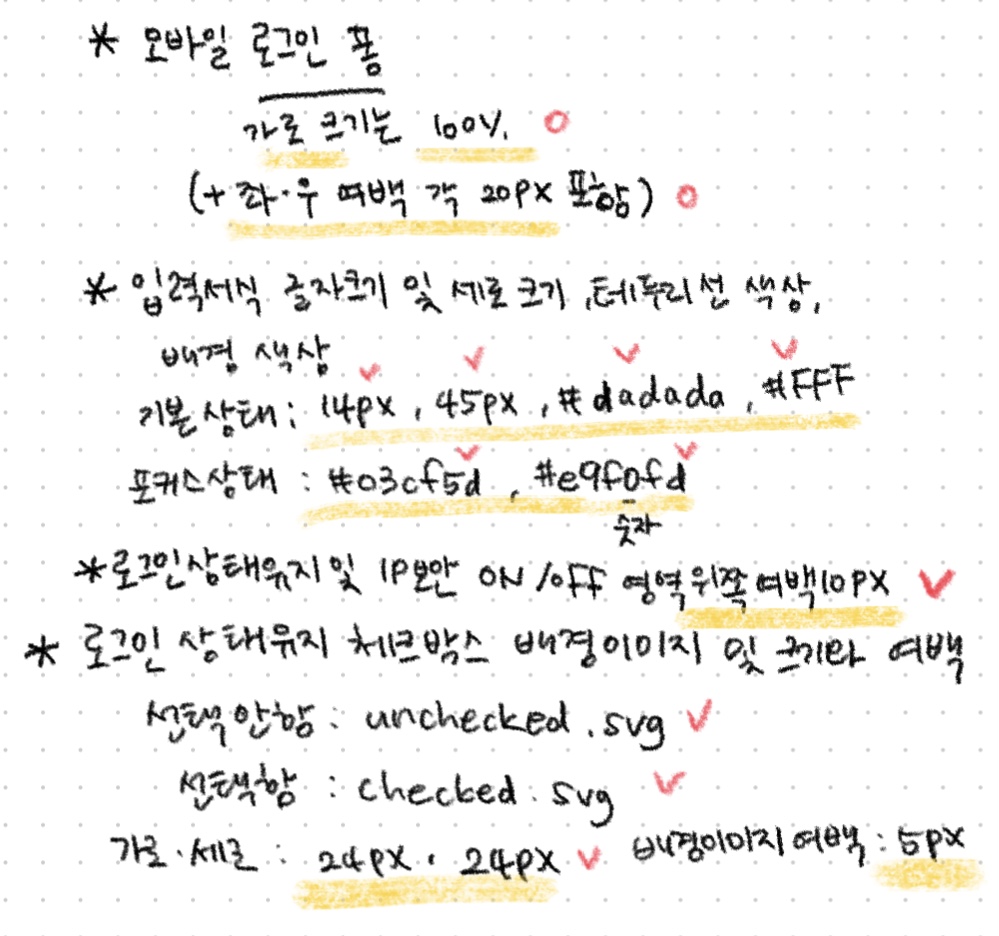 * 모바일 로그인 폼
가로 크기는 100%
(+ 좌·우 여백 각 20px 포함)
* 입력서식 글자크기 및 세로 크기, 테두리선 색상,
배경 색상
기본 상태 : 14px, 45px, #dadada, #FFF
포커스상태 : #03cf5d, #e9f0fd
숫자
* 로그인상태유지 및 IP보안 ON/OFF 영역 위쪽여백10px
* 로그인 상태유지 체크박스 배경이미지 및 크기와 여백
선택안함 : unchecked.svg
선택함 : checked.svg
가로·세로 : 24px · 24px 배경이미지 여백 : 5px